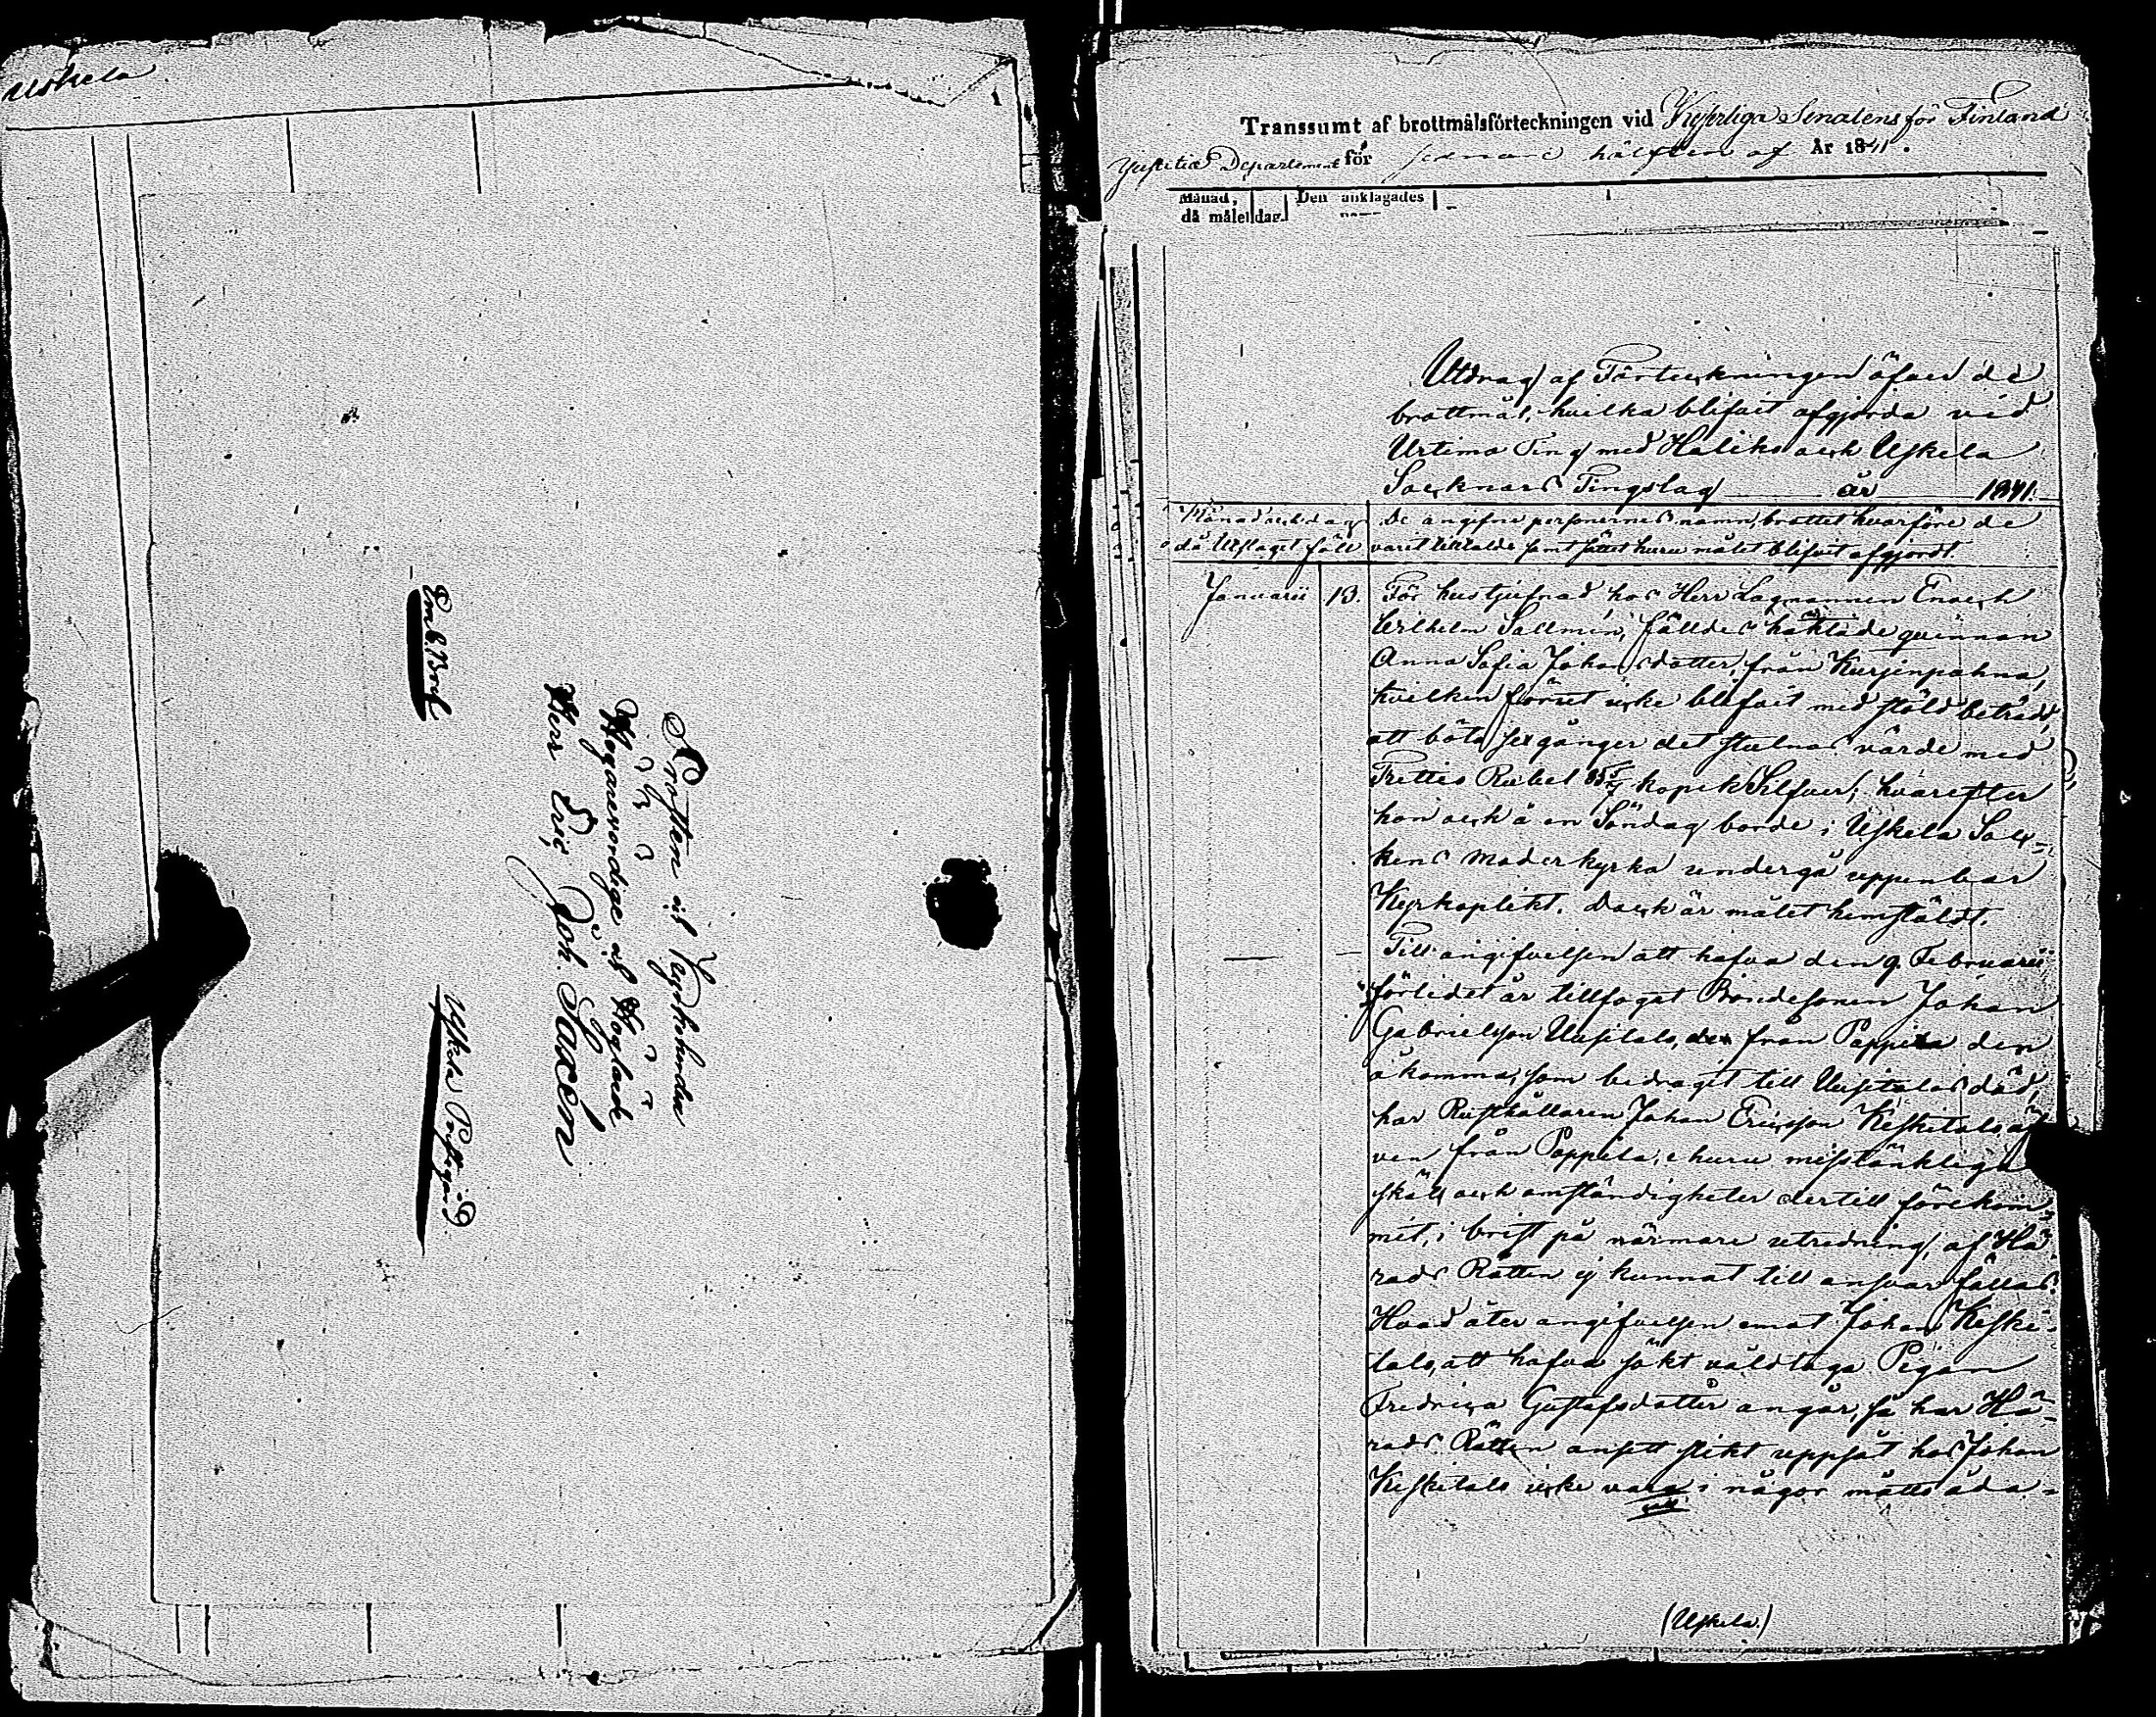 Uskela
1
Prosten och Kyrkoherden
Högärevördige och Höglärde
Herr Eric Joh. Sacén
Emb. Bref
Uskela Prestgård
Transsumt af brottmålsförteckningen vid Kejserliga Senatens för Finland
Justitiæ Departement för sednare hälften af År 1841.
Månad, Den anklagades
då målet dag.
Utdrag af Förteckningen öfver de
brottmål, hvilka blifvit afgjorda vid
Urtima Ting med Haliko och Uskela
Socknars Tingslag år 1841.
Månad och dag De angifne personernes namn, brottet hvarföre de
då Utslaget föll varit tilltalde samt sättet huru målet blifvit afgjordt
Januarii 13. För hustjufnad hos Herr Lagmannen Enoch
Wilhelm Sallmén, fälldes häktade quinnan
Anna Sofia Johansdotter, från Kurjenpahna,
hvilken förut icke blifvit med stöld beträdd,
att böta sex gånger det stulnas värde med
Trettio Rubel 85 5/7 kopek Silfver; hvarefter
hon och å en Söndag borde i Uskela Soc-
kens moderkyrka undergå uppenbar
Kyrkoplikt. Dock är målet hemstäldt.
Till angifvelsen att hafva den 9. Februarii
förlidet år tillfogat Bondesonen Johan
Gabrielsson Uusitalo, från Pappila den
åkomma, som bidragit till Uusitalos död,
har Rusthållaren Johan Ericsson Keskitalo, äf-
ven från Pappila, ehuru misstänkliga
skäl och omständigheter dertill förekom-
mit, i brist på närmare utredning, af Hä-
rads Rätten ej kunnat till ansvar fällas.
Hvad åter angifvelsen emot Johan Keski-
talo, att hafva sökt våldtaga Pigan
Fredrica Gustafsdotter angår, så har Hä-
rads Rätten ansett slikt uppsåt hos Johan
Keskitalo icke vara i någor måtto åda-
(Uskela.)